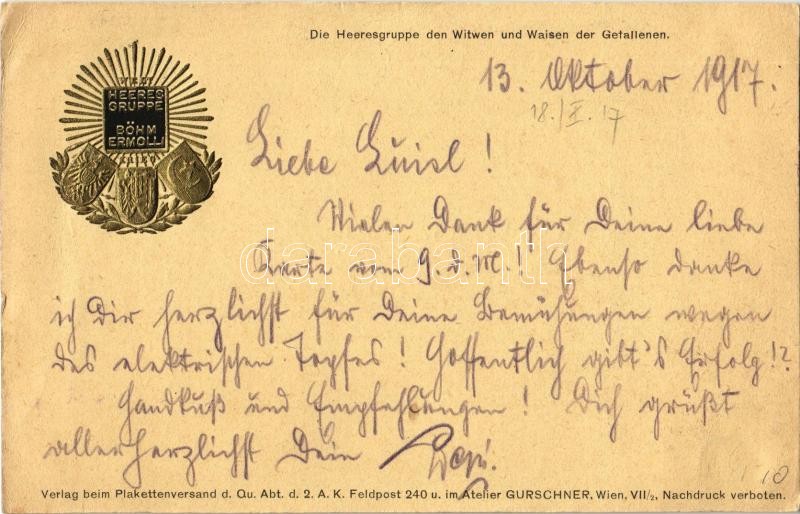 Die Heeresgruppe den Witwen und Waisen der Gefallenen.
HEERES
GRUPPE
BÖHM
ERMOLLI
13. Oktober 1917.
18./X. 17
Liebe Luisl!
Vielen Dank für Deine liebe
Karte vom 9. d. M.! Ebenso danke
ich Dir herzlichst für Deine Bemühungen wegen
des elektrischen Topfes! Hoffentlich gibt's Erfolg!?
Handkuß und Empfehlungen! Dich grüßt
allerherzlichst Dein
10
Verlag beim Plakettenversand d. Qu. Abt. d. 2. A. K. Feldpost 240 u. im Atelier GURSCHNER, Wien, VII/2, Nachdruck verboten.
darabanth